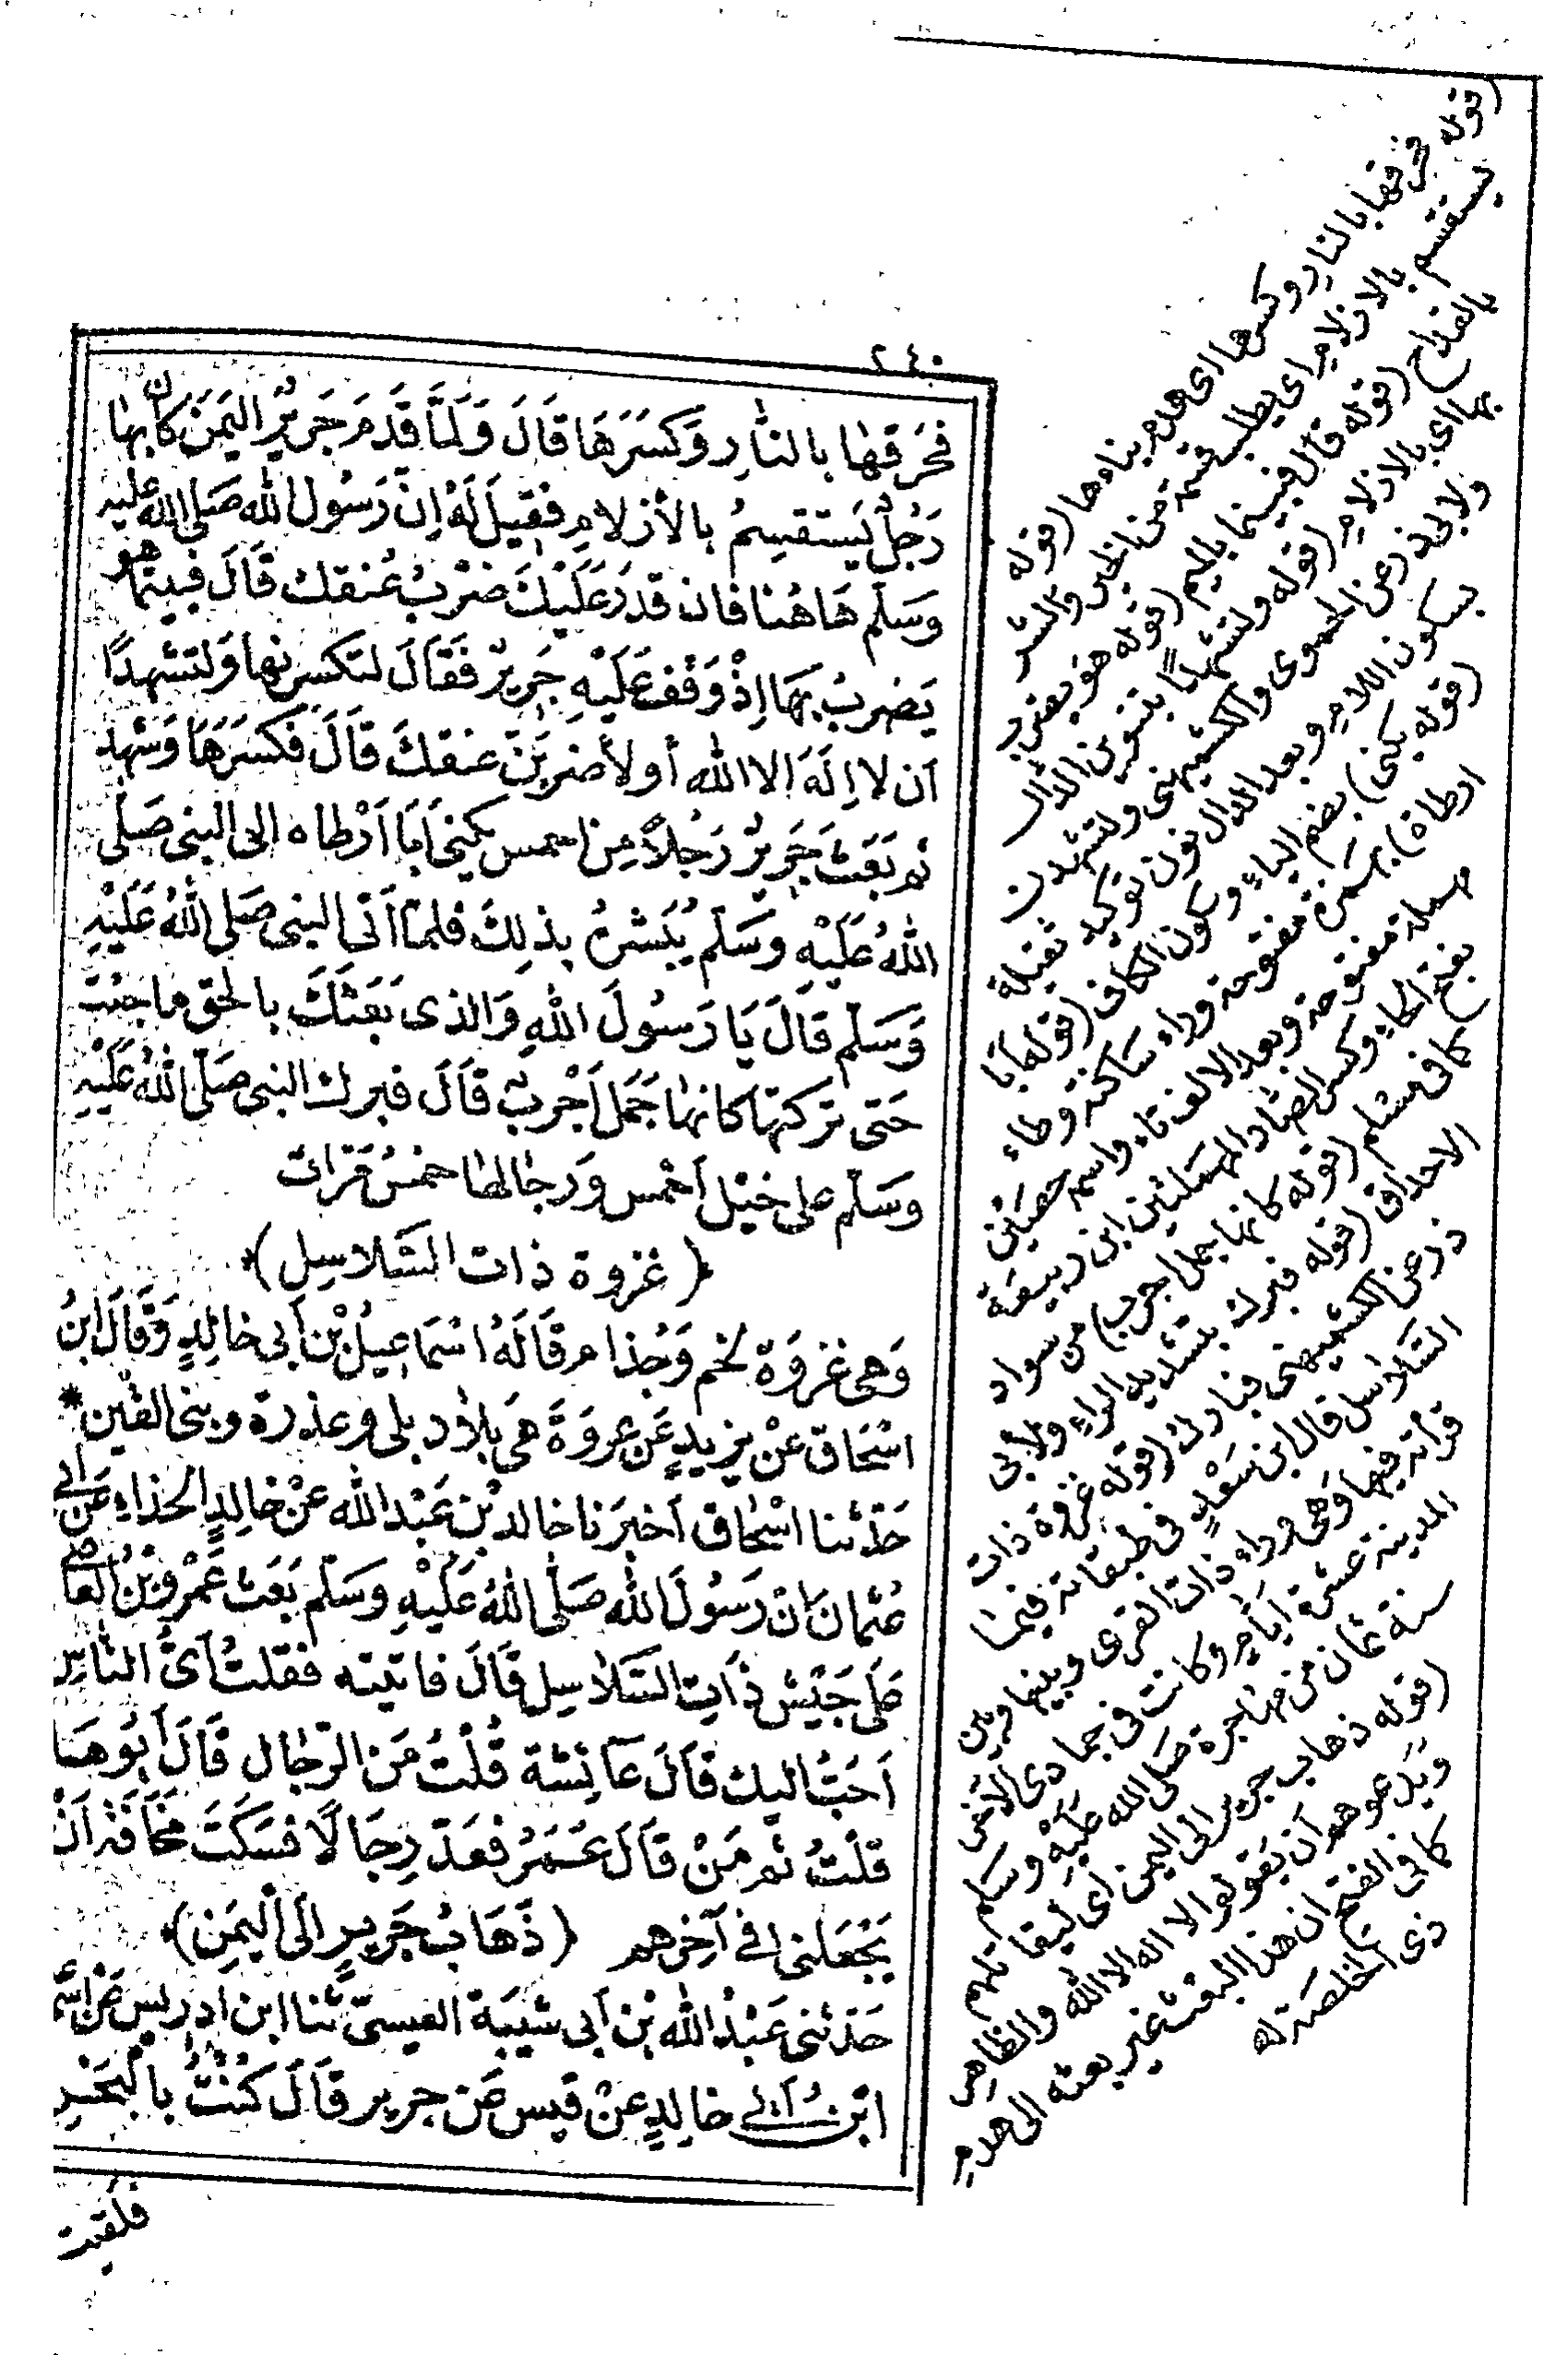 ٢٤٠
فحَرقهَا بالنَّارِ وَكسَرَهَا قَالَ وَلمَّا قَدمَ جَريرٌ اليَمَنَ كانَ بهَا
رَجُلٌ يَستقسِمُ بالأزلامِ فقِيلَ لهُ اِنّ رَسُول الله صَلى الله عليه
وَسَلم هَاهُنا فان قدرَ عَلَيْكَ ضرْبَ عُنقك قَالَ فبينمَا هو
يَضربُ بهَا اِذْ وَقفَ عَلَيْهِ جَرِيرٌ فقَالَ لتكسرنهَا وَلتشهدًا
اَن لا اِلَهَ الا الله أو لأضربَنّ عنقكَ قَالَ فكسَرَهَا وَشهدَ
ثم بَعَثَ جَريرٌ رَجُلاً مِن احمس يكنى اَبَا اَرْطاه الى النبى صَلى
اللهُ عَليْهِ وَسَلم يُبَشرُهُ بذلِكَ فلمّا اَتَى النبى صَلى اللهُ عَلَيْهِ
وَسَلم قَالَ يَا رَسُولَ اللهِ وَالذى بَعَثكَ بالحق ما جئت
حَتى تركتهَا كانهَا جَمَل اَجْربُ قَالَ فبرك النبى صَلّى اللهُ عَلَيْهِ
وَسَلم على خيْل اَحْمس وَرجَالهَا خمسَ مَرات
(غزوة ذات السَّلاسِل)
وَهى غزوَة لخم وَجُذام قَالَهُ اسْمَاعِيلُ بْن اَبى خالِدٍ وَقَالَ ابنُ
اسْحَاق عنْ يزيدٍ عَن عروَةَ هىَ بلاد بلى وعذرة وبنى القين *
حَدّثنا اسْحَاق اَخبرَنا خالد بْن عَبْد الله عنْ خالِدٍ الحذاءِ عَن ابى
عُثمان اَنّ رَسُولَ الله صَلَّى اللهُ عَلَيْهِ وَسَلم بَعَث عَمْرو بْنُ العَاصِ
عَلى جَيْش ذَاتِ السَّلاسِل قَالَ فاتيته فقلتُ اَىُّ النَّاسِ
اَحَبّ اليك قَالَ عَائِشة قُلتُ مَن الرّجال قَالَ أَبُوهَا
قلتُ ثم مَنْ قَالَ عُمَرُ فعَدّ رِجَالاً فسَكتّ مَخَافَة اَنْ
يَجْعَلنى فى آخِرهم (ذَهَابُ جَرِيرٍ الَى اليَمَنِ)
حَدّثنى عَبْدُ الله بْن اَبى شيْبَة العَبسىّ ثنا ابن ادريس عَنْ اسْمَ
ابْن اَبى خالِدٍ عنْ قيس عَن جرير قَالَ كُنْتُ بالبَحْرِ
فلقيت
(قوله فحرقها بالنار وكسرها اى هدم بناءها (قوله
يستقسم بالازلام اى يطلب قسمه من الخير والشر
بالقداح (قوله قال فبينما بالميم (قوله هو يضرب
بها اى بالازلام (قوله ولتشهدًا بتنوين الدال
ولابى ذر عن الحموى والكشميهنى ولتشهدن
بسكون اللام وبعد الدال نون توكيد ثقيلة
(قوله يكنى) بضم الياء وسكون الكاف (قوله ابا
ارطاة) بهمزة مفتوحة وراء ساكنة وطاء
مهملة مفتوحة وبعد الالف تاء واسمه حصين
بفتح الحاء وكسر الصاد المهملتين ابن ربيعة
كما فى مسلم (قوله كانها جمل اجرب) من سواد
الاحراق (قوله فبرك بتشديد الراء ولابى
ذر عن الكشميهنى فبارك (قوله غزوة ذات
السَّلاسل قال ابن سَعْدٍ فى طبقاته فيما
قرأته فيها وَهى وراء ذات القرى وبينها وبين
المدينة عشرة اَيّام وكانت فى جمادى الآخرة
سنة ثمان من مهاجره صَلى الله عَلَيْهِ وسَلم
(قوله ذهاب جرير الى اليمن اى ليقاتلهم
وَيَدعوهم اَن يَقولوا لا اله الا الله والظاهر
كما فى الفتح ان هذا البعث غير بعثه الى هدم
ذى الخلصة له